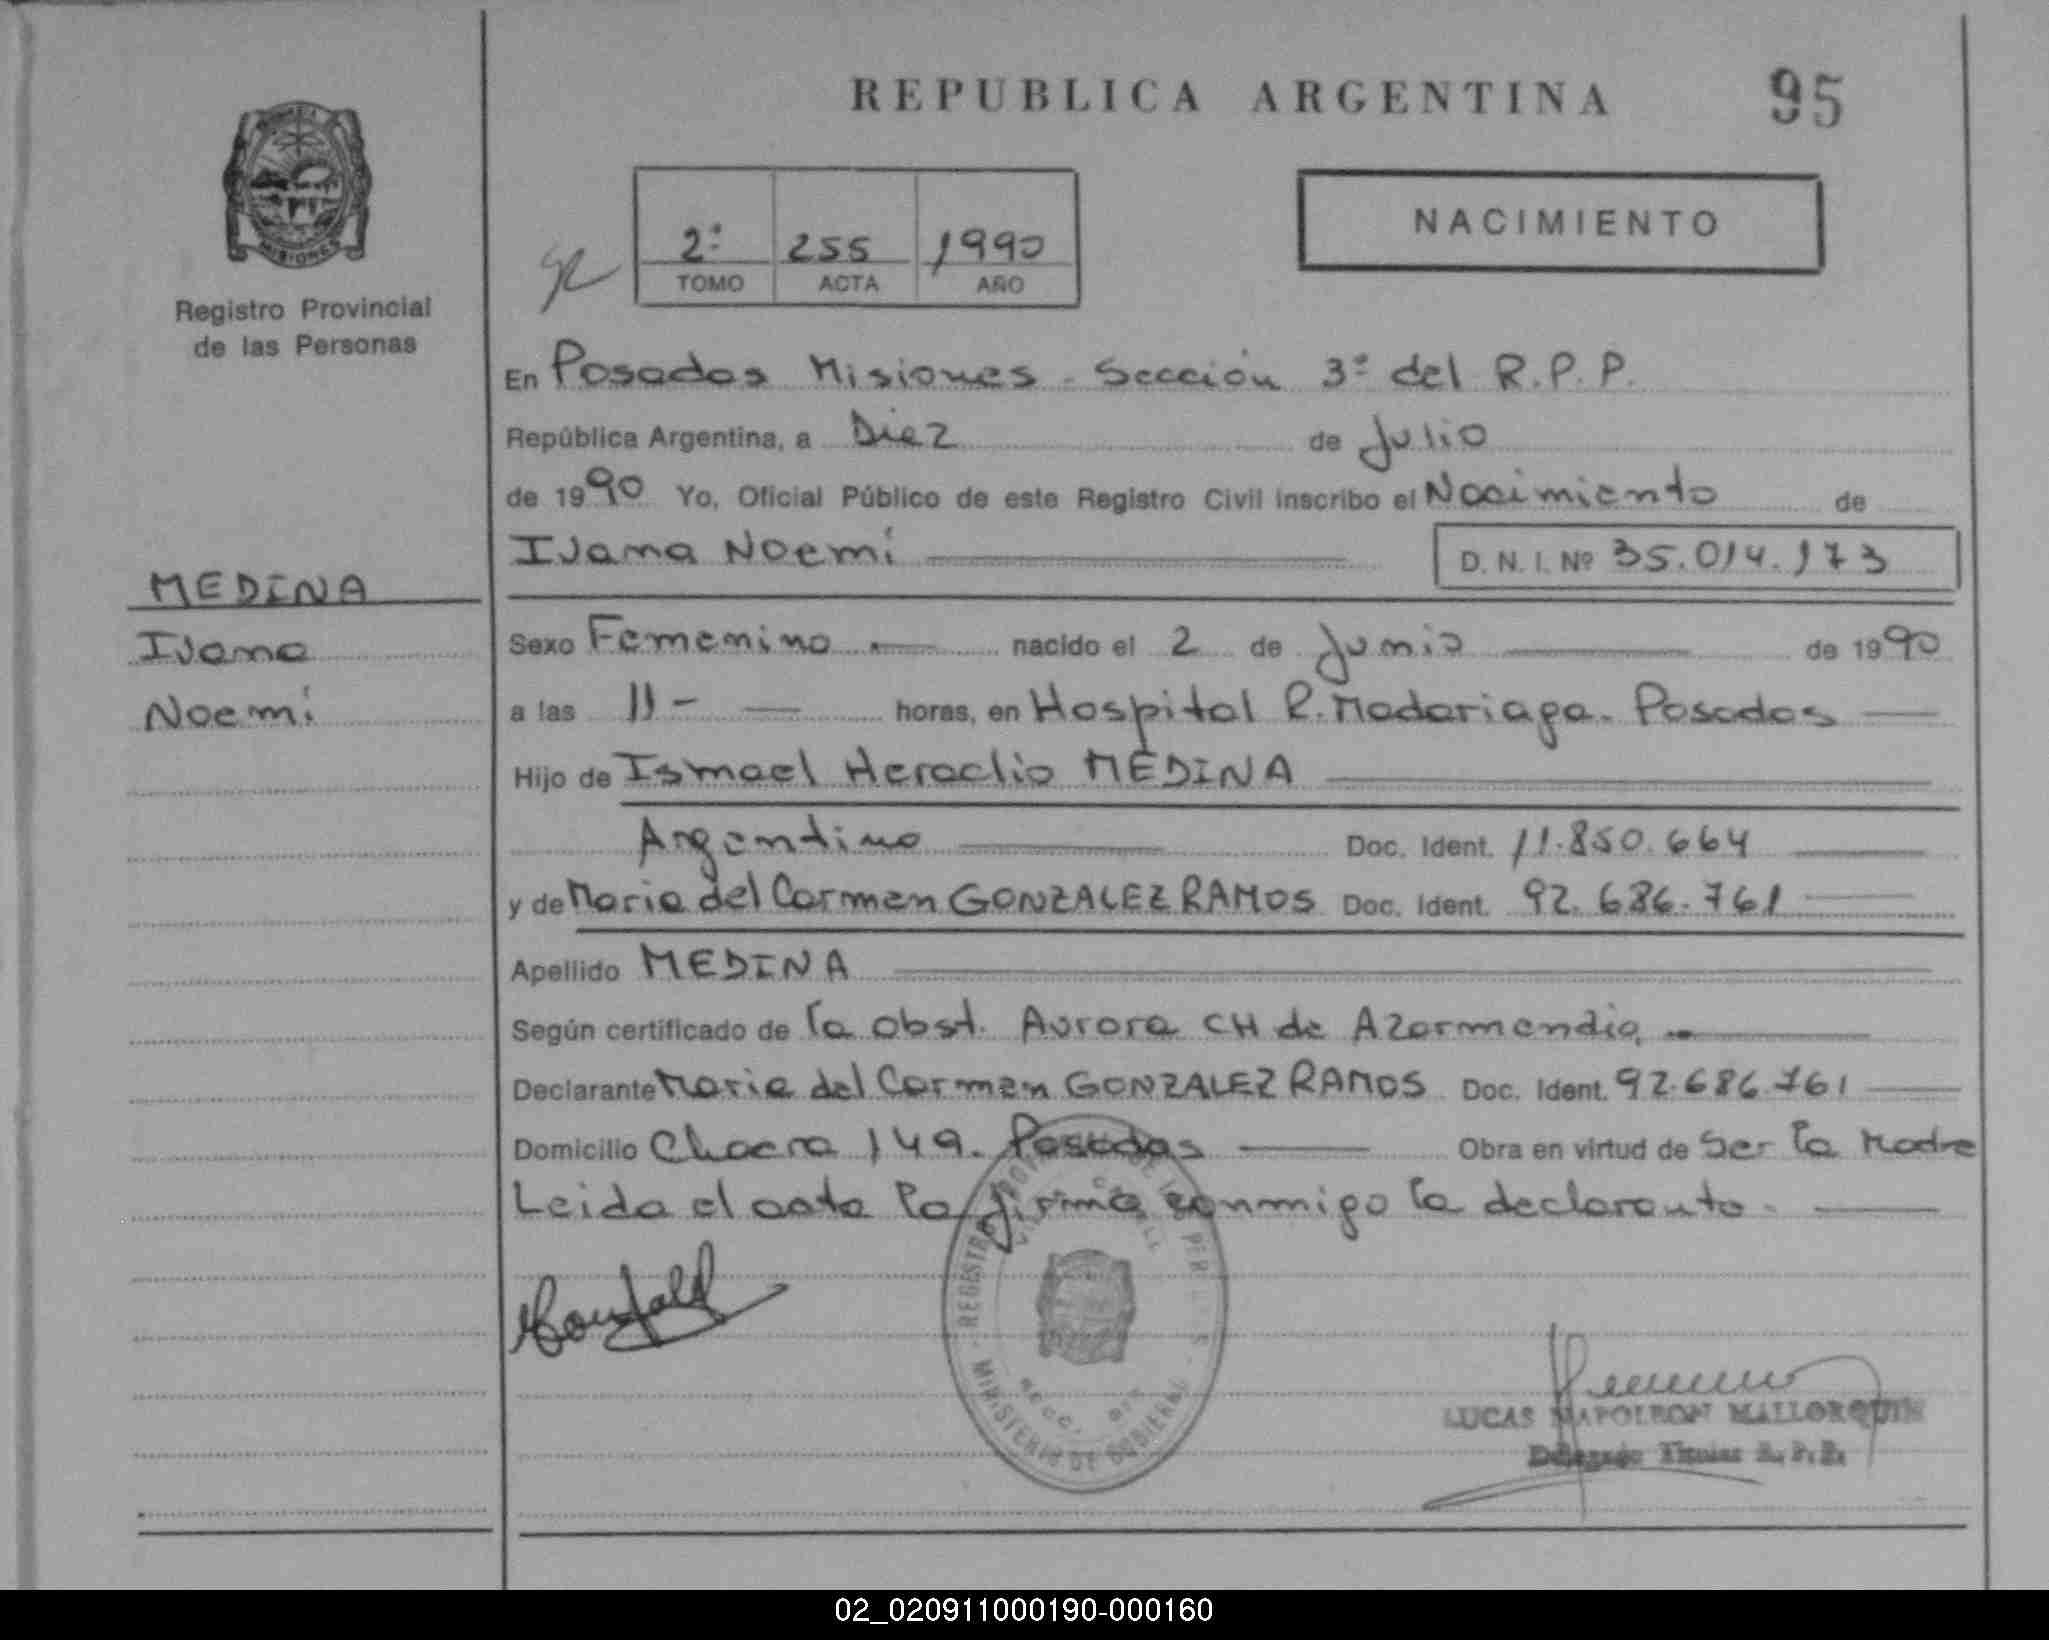 REPUBLICA ARGENTINA 95
NACIMIENTO
2º 255 1990
TOMO ACTA AÑO
MISIONES
Registro Provincial
de las Personas
En Posadas Misiones - Sección 3º del R.P.P.
República Argentina, a Diez de Julio
de 1990 Yo, Oficial Público de este Registro Civil inscribo el Nacimiento de
Ivana Noemí D. N. I. Nº 35.014.173
MEDINA
Ivana
Noemí
Sexo Femenino nacido el 2 de Junio de 1990
a las 11- horas, en Hospital R. Madariaga. Posadas
Hijo de Ismael Heraclio MEDINA
Argentino Doc. Ident. 11.850.664
y de Maria del Carmen GONZALEZ RAMOS Doc. Ident. 92.686.761
Apellido MEDINA
Según certificado de la obst. Aurora CH de Azarmendia
Declarante Maria del Carmen GONZALEZ RAMOS Doc. Ident. 92.686.761
Domicilio Chacra 149. Posadas Obra en virtud de Ser la Madre
Leida el acta la firma conmigo la declarante.
MINISTERIO DE GOBIERNO
LUCAS NAPOLEON MALLORQUIN
Delegado Titular R.P.P.
02_020911000190-000160